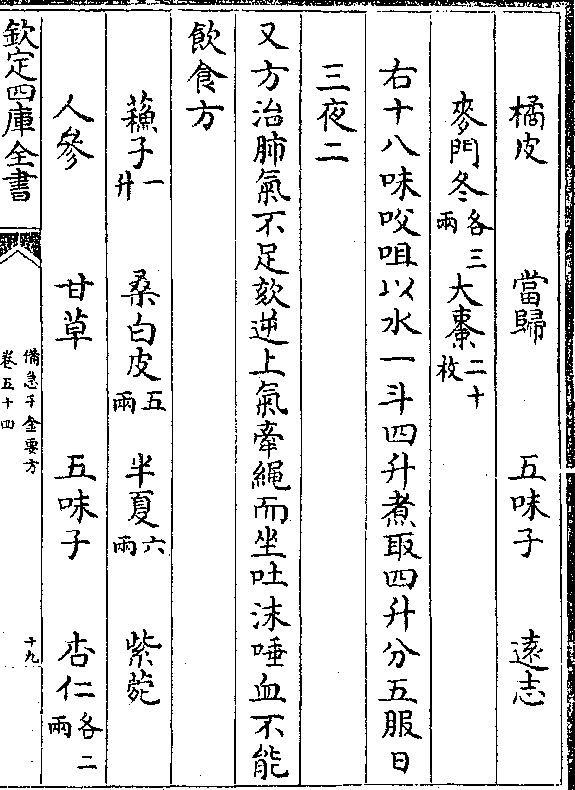 橘皮　當歸　五味子　遠志
麥門冬各三兩　大棗二十枚
右十八味㕮咀以水一斗四升煮取四升分五服日
三夜二
又方治肺氣不足欬逆上氣牽繩而坐吐沫唾血不能
飲食方
蘓子一升　桑白皮五兩　半夏六兩　紫菀
人參　甘草　五味子　杏仁各二兩
欽定四庫全書
備急千金要方
卷五十四
十九